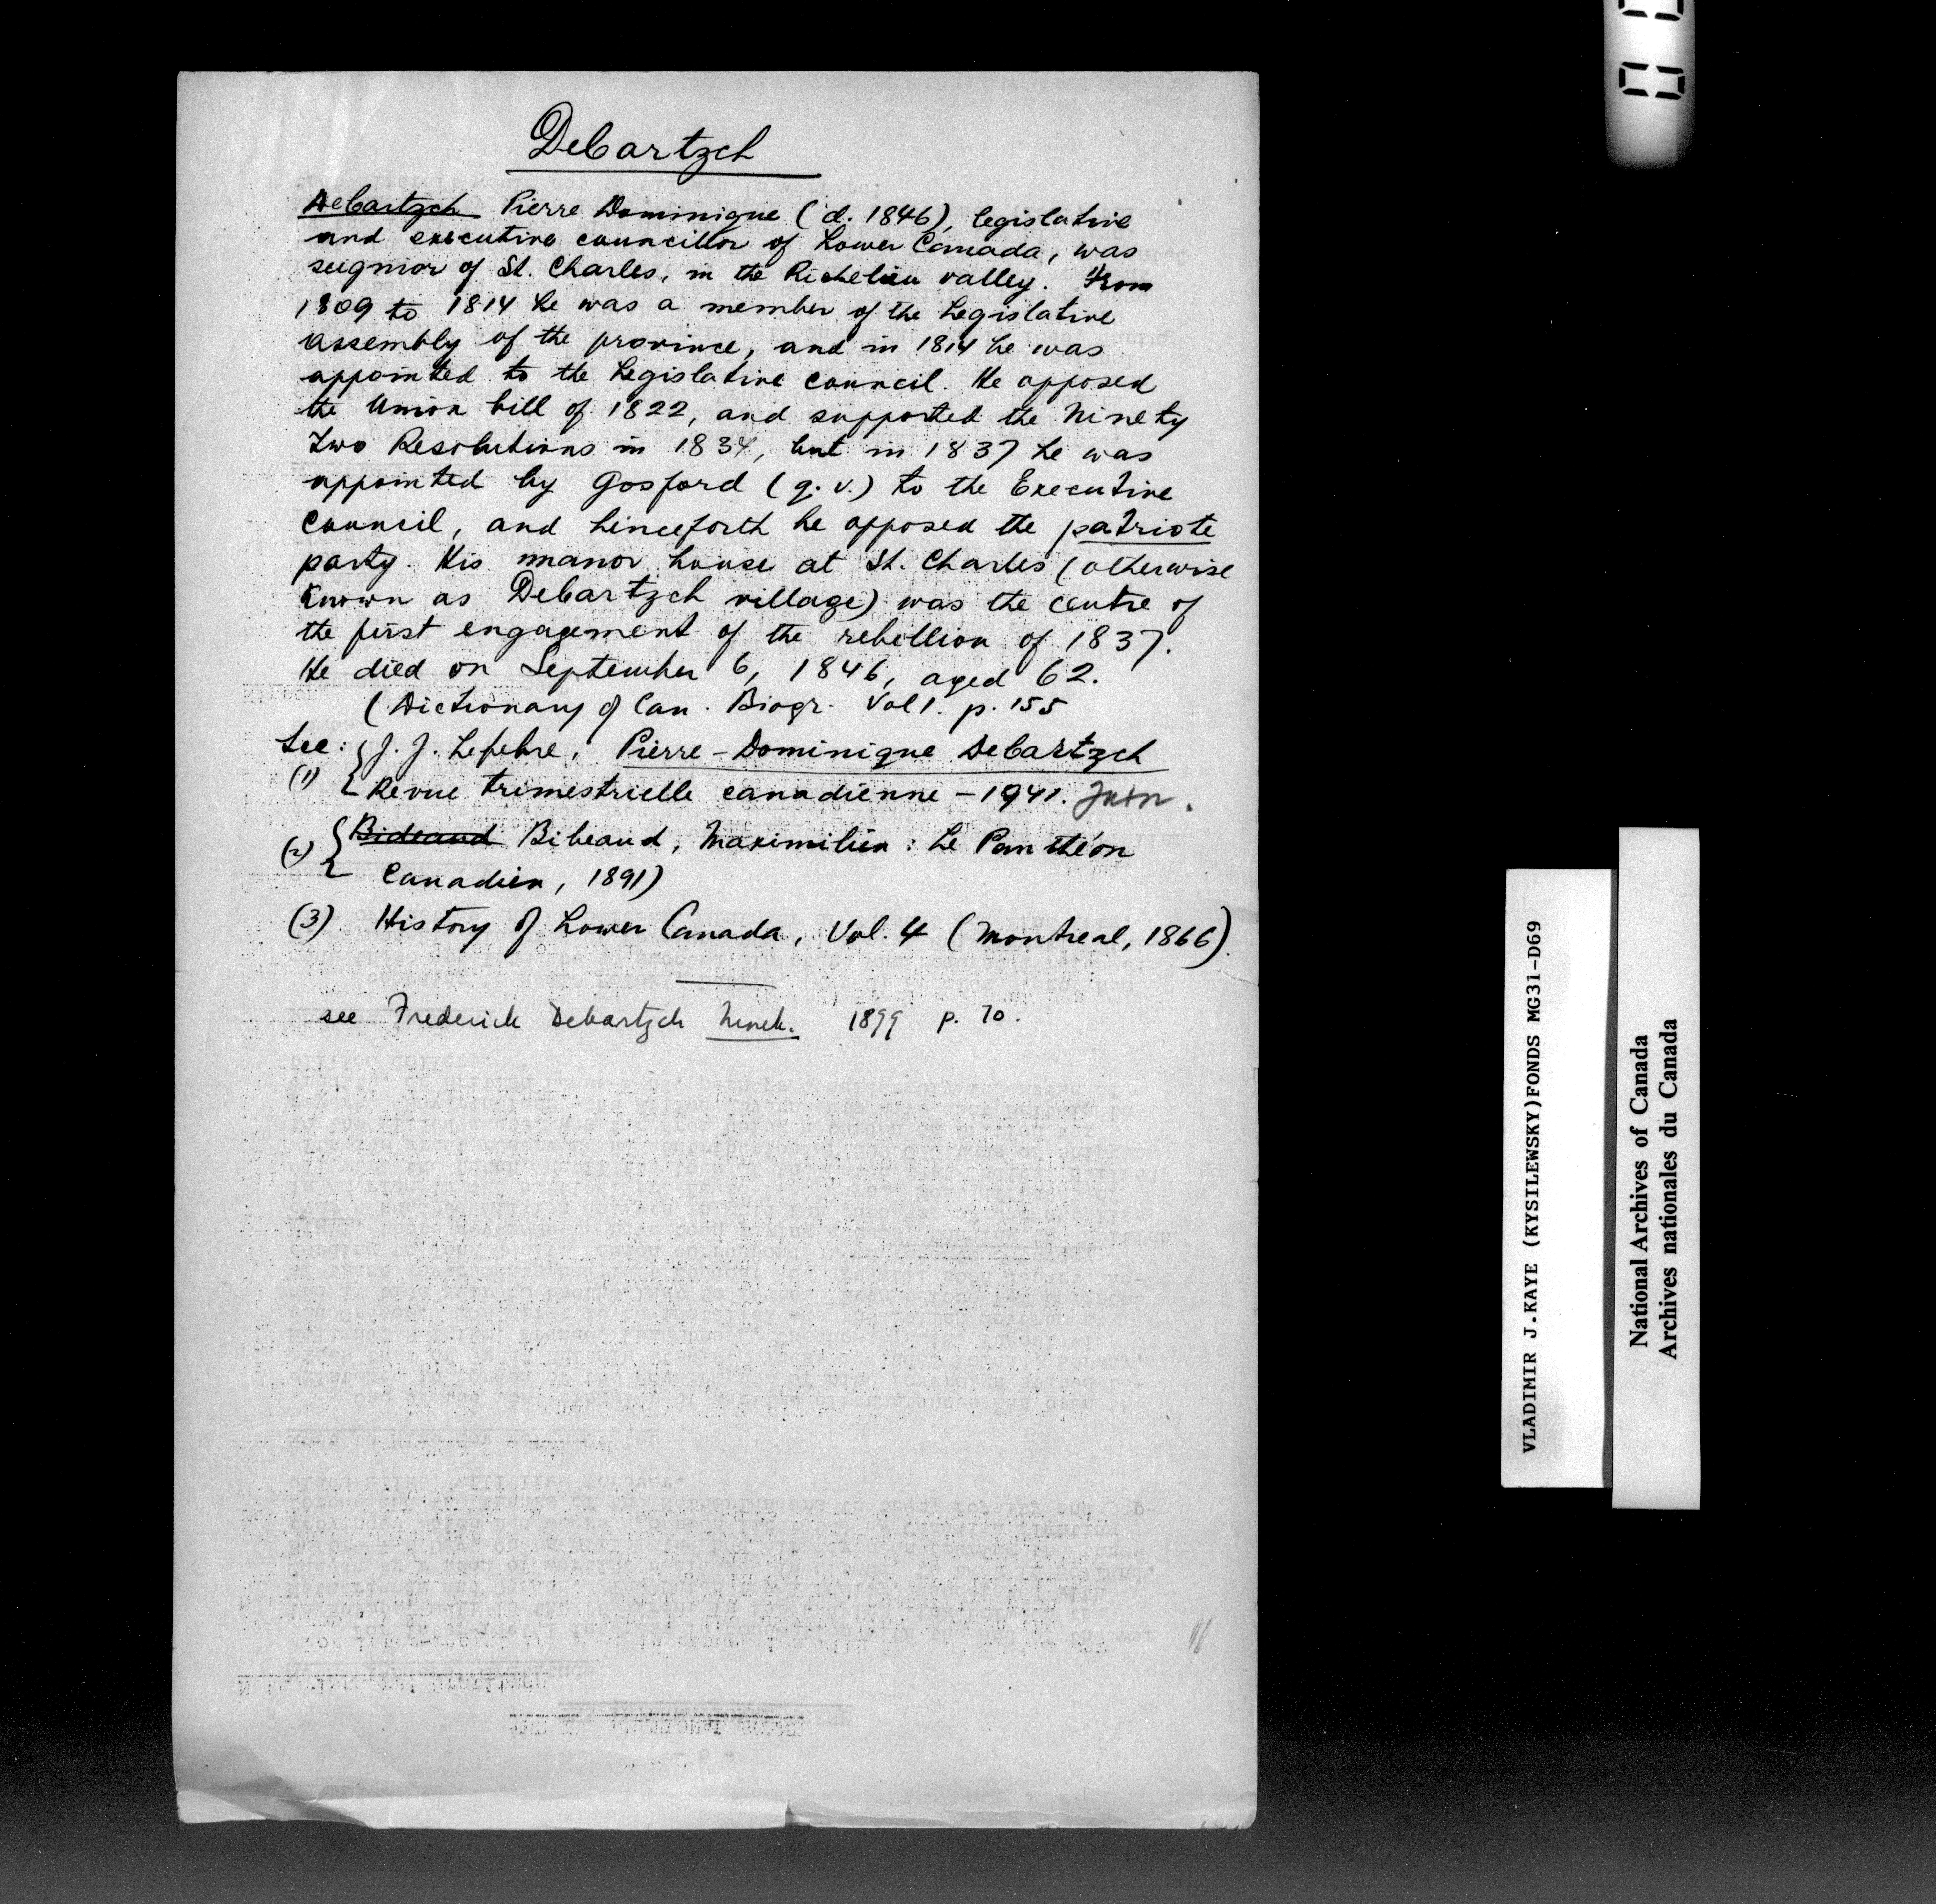 Debartzch
Debartzch Pierre Dominique (d. 1846), legislative
and executive councillor of Lower Canada, was
seignior of St. Charles, in the Richelieu valley. From
1809 to 1814 he was a member of the Legislative
Assembly of the province, and in 1814 he was
appointed to the Legislative Council. He opposed
the Union bill of 1822, and supported the Ninety
Two Resolutions in 1834, but in 1837 he was
appointed by Gosford (q.v.) to the Executive
Council, and hinceforth he opposed the patriote
party. His manor house at St. Charles (otherwise
known as Debartzch village) was the centre of
the first engagement of the rebellion of 1837.
He died on September 6, 1846, aged 62.
(Dictionary of Can. Biogr. Vol 1. p. 155
See: J. J. Lefebre, Pierre-Dominique Debartzch
(1) Revue trimestrielle canadienne - 1941. Juin.
(2) Bideaud Bibeaud, Maximilien: Le Panthéon
Canadien, 1891)
(3). History of Lower Canada, Vol. 4 (Montreal, 1866).
see Frederick Debartzch 1899 p. 70.
VLADIMIR J.KAYE (KYSILEWSKY)FONDS MG31-D69
National Archives of Canada
Archives nationales du Canada